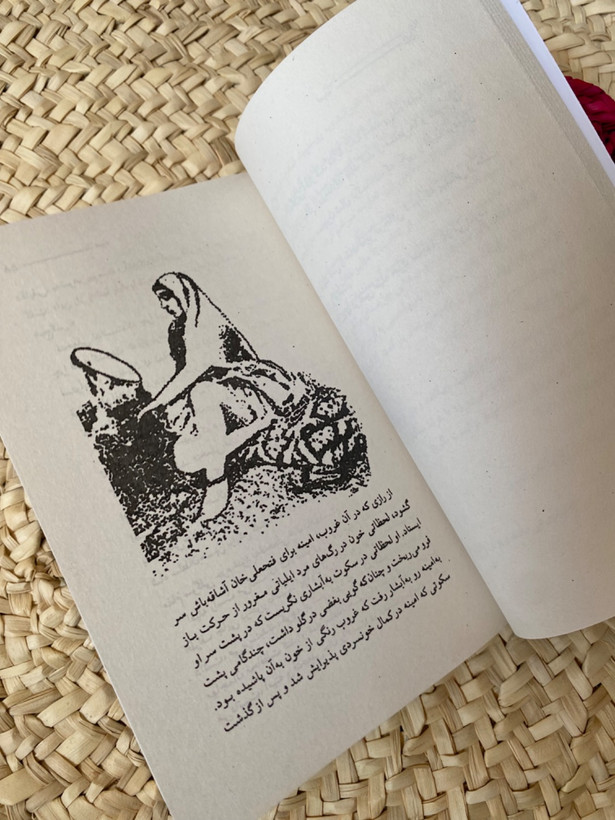 از رازی که در آن غروب، امینه برای فتحعلی‌خان آشاقه‌باش سر
گشود، لحظاتی خون در رگ‌های مرد ایلیاتی مغرور از حرکت باز
ایستاد. او لحظاتی در سکوت به‌آبشاری نگریست که در پشت سر او
فرو می‌ریخت و چنان‌که گویی بغضی در گلو داشت، چندگامی پشت
به‌امینه رو به‌آبشار رفت که غروب رنگی از خون به‌آن پاشیده بود.
سکوتی که امینه در کمال خونسردی پذیرایش شد و پس از گذشت